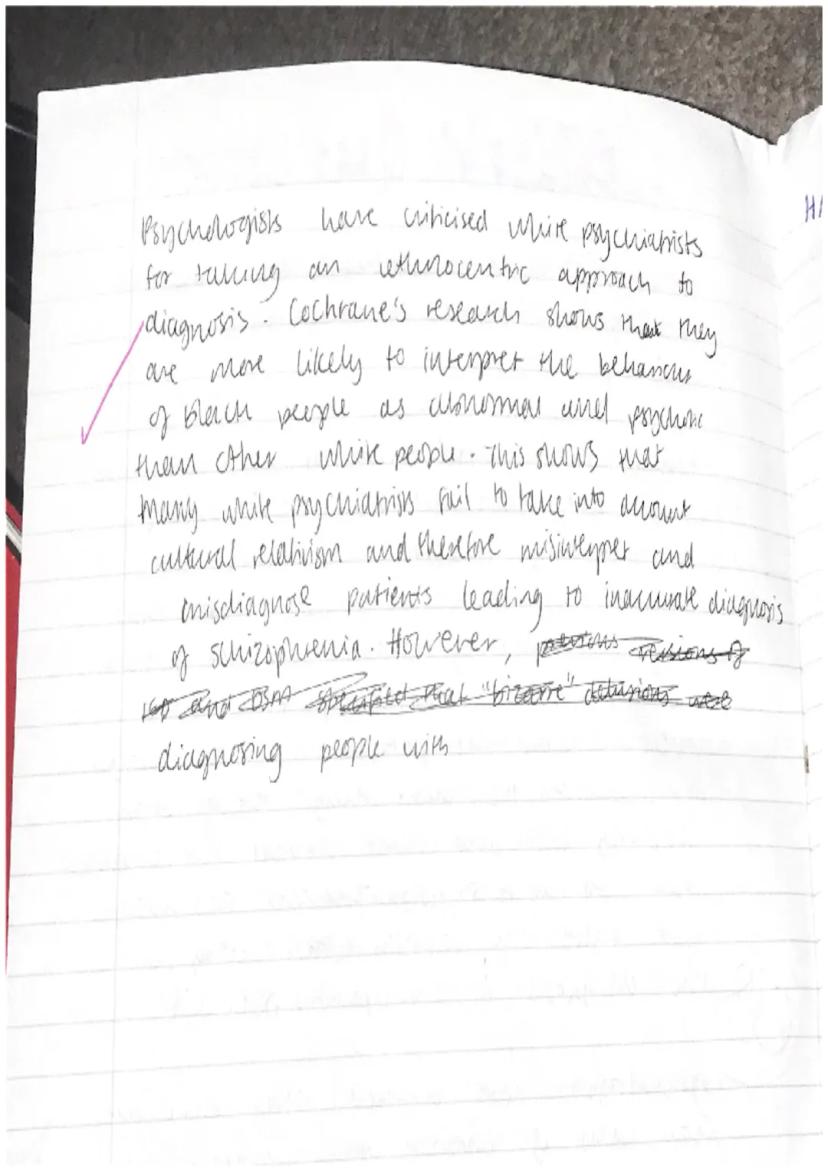 Psychologists have criticised white psychiatrists
for taking an ethnocentric approach to
diagnosis. Cochrane's research shows that they
are more likely to interpret the behaviours
of black people as abnormal and psychotic
than other white people. This shows that
many white psychiatrists fail to take into account
cultural relativism and therefore misinterpret and
misdiagnose patients leading to inaccurate diagnosis
of schizophrenia. However, previous revisions of
ICD and DSM specified that "bizarre" delusions were
diagnosing people with